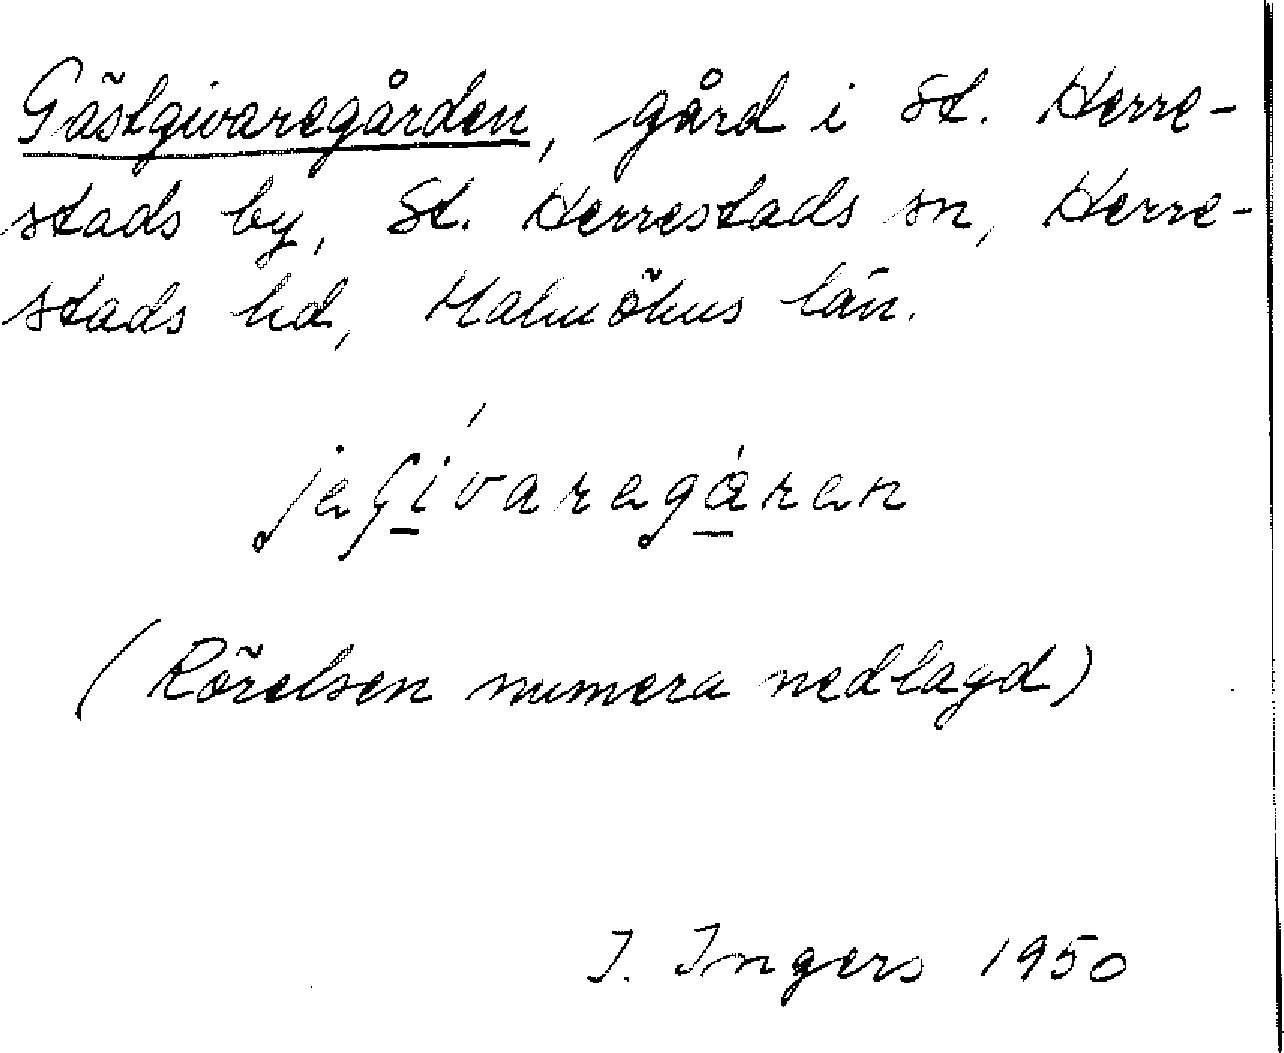 Gästgivaregården, gård i St. Herre-
stads by, St. Herrestads sn, Herre-
stads hd, Malmöhus län.
(Rörelsen numera nedlagd)
I. Ingers 1950